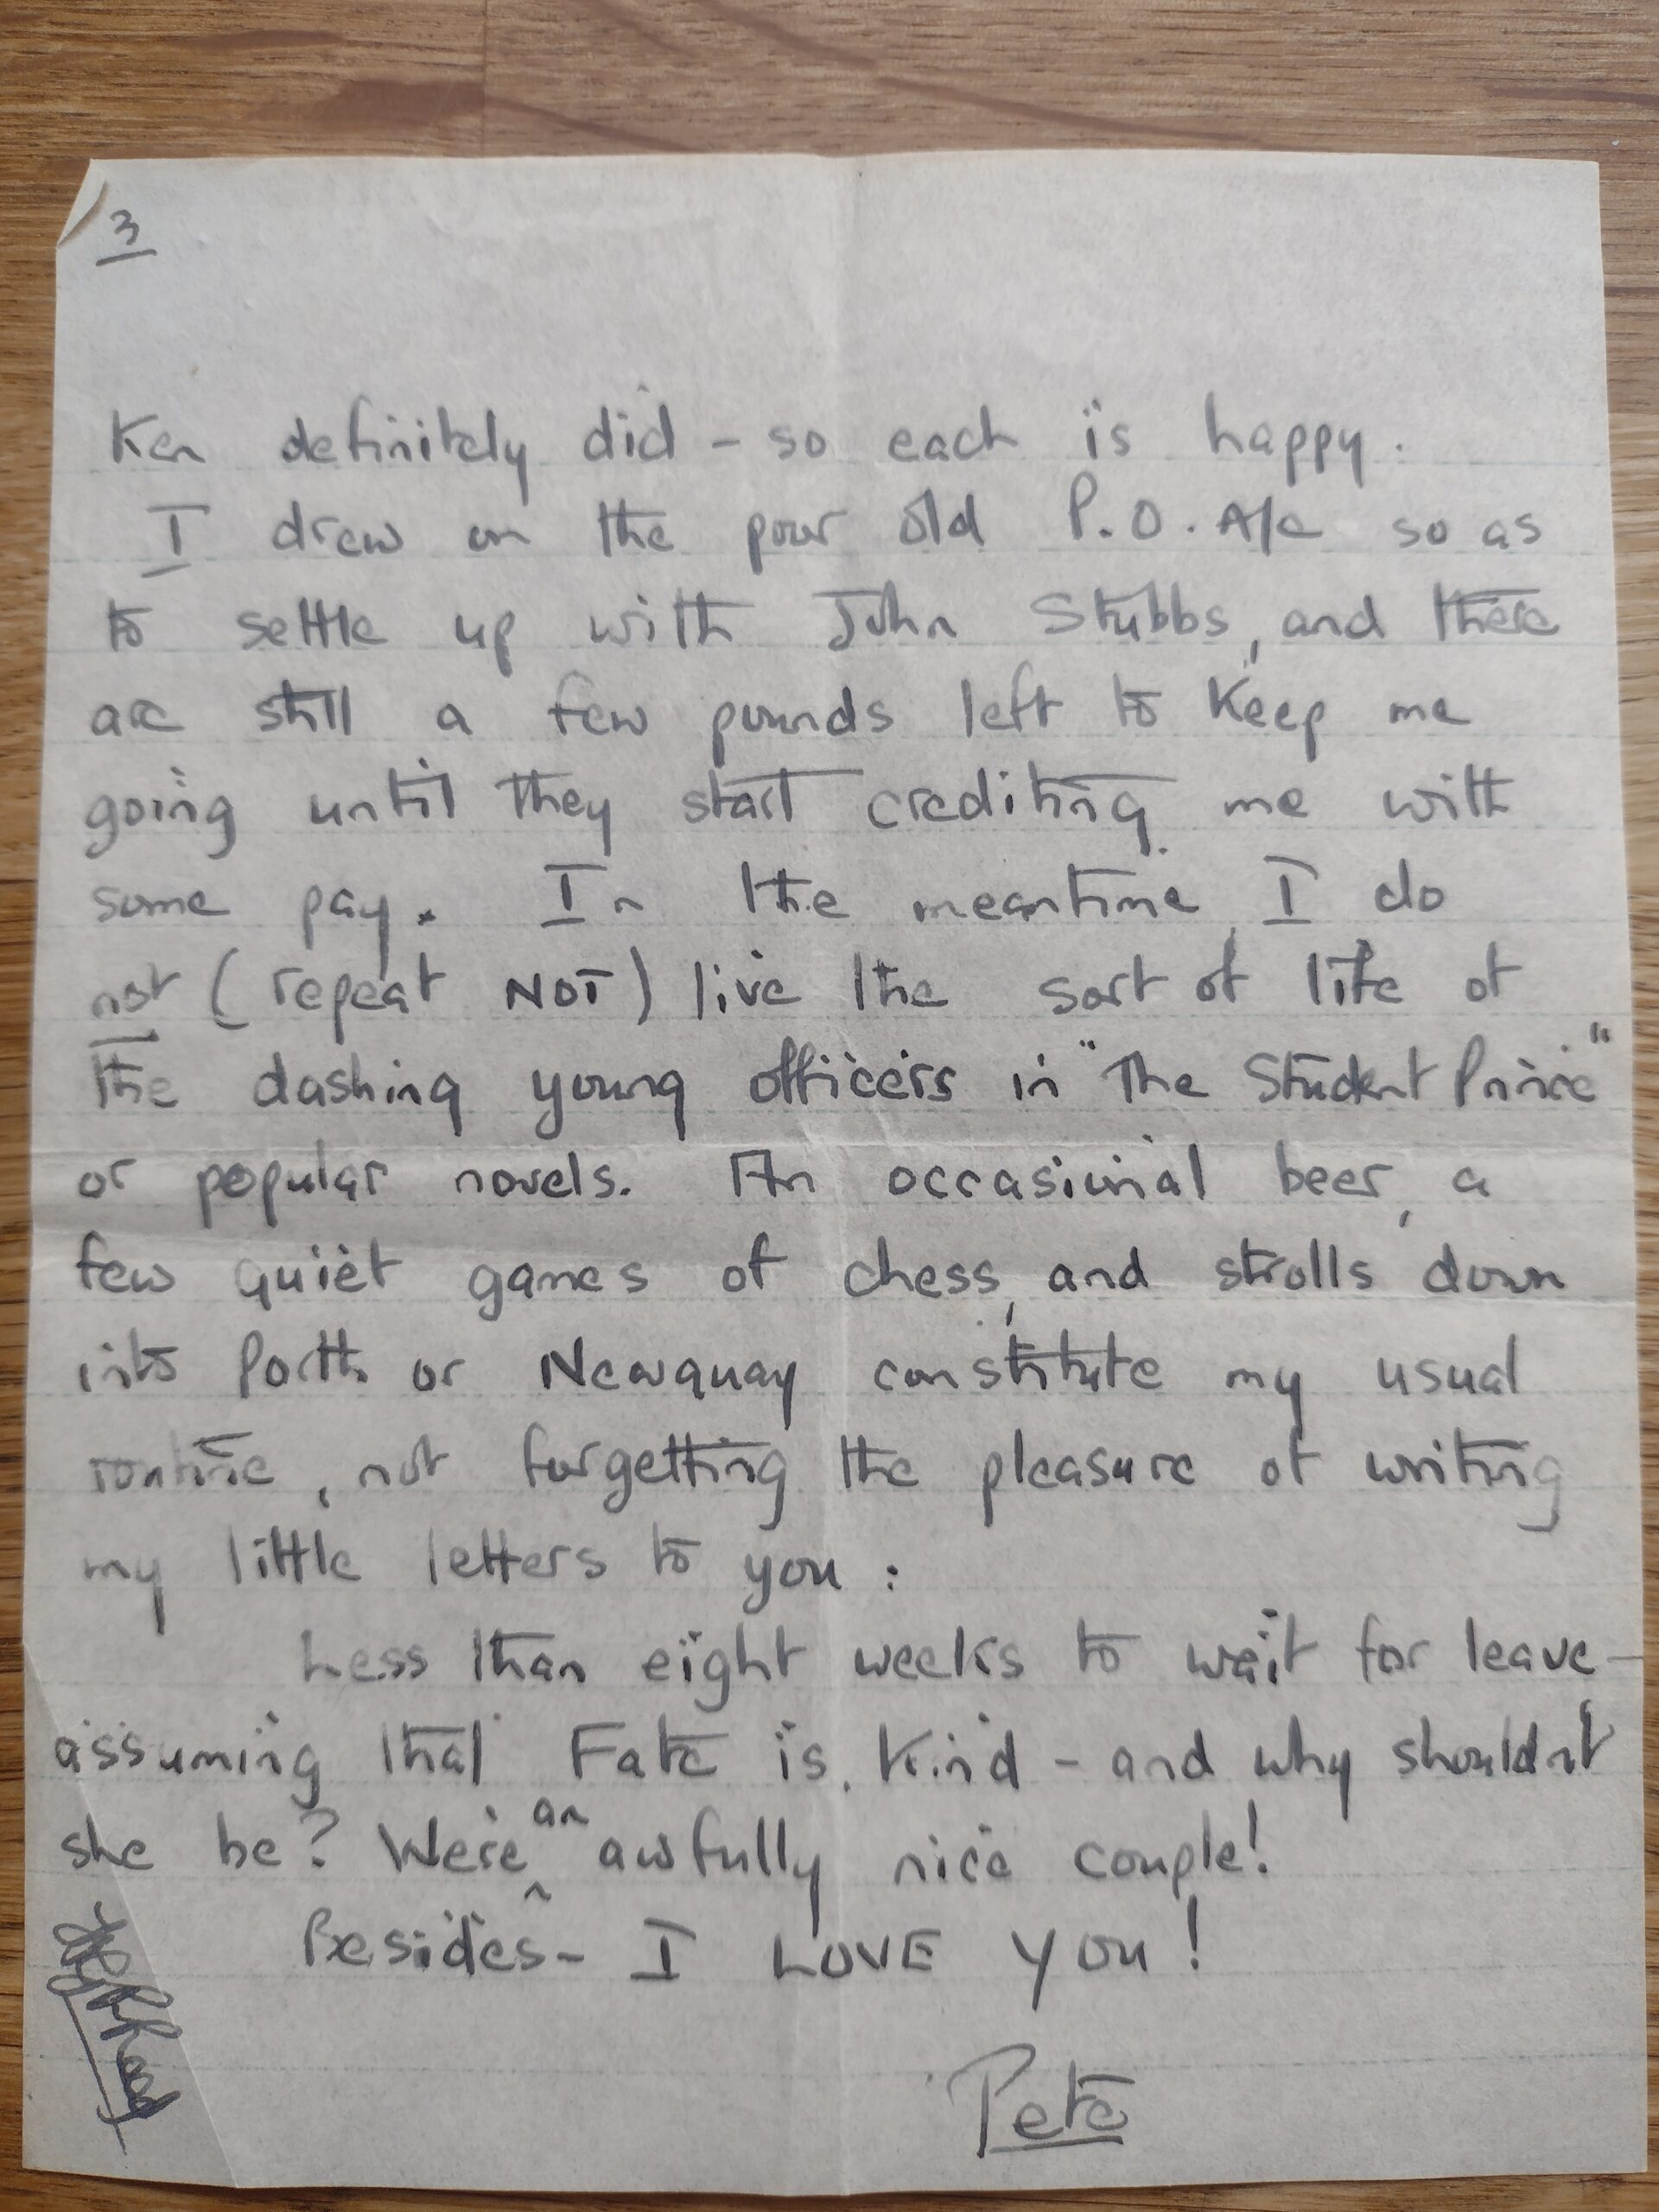 3
Ken definitely did - so each is happy.
I drew on the poor old P.O. A/c so as
to settle up with John Stubbs, and there
are still a few pounds left to keep me
going until they start crediting me with
some pay. In the meantime, I do
not (repeat NOT) live the sort of life of
the dashing young officers in "The Student Prince"
or popular novels. An occasional beer, a
few quiet games of chess, and strolls down
into Porth or Newquay constitute my usual
routine, not forgetting the pleasure of writing
my little letters to you:
Less than eight weeks to wait for leave -
assuming that Fate is kind - and why shouldn't
she be? We're an awfully nice couple!
Besides - I LOVE YOU!
Pete